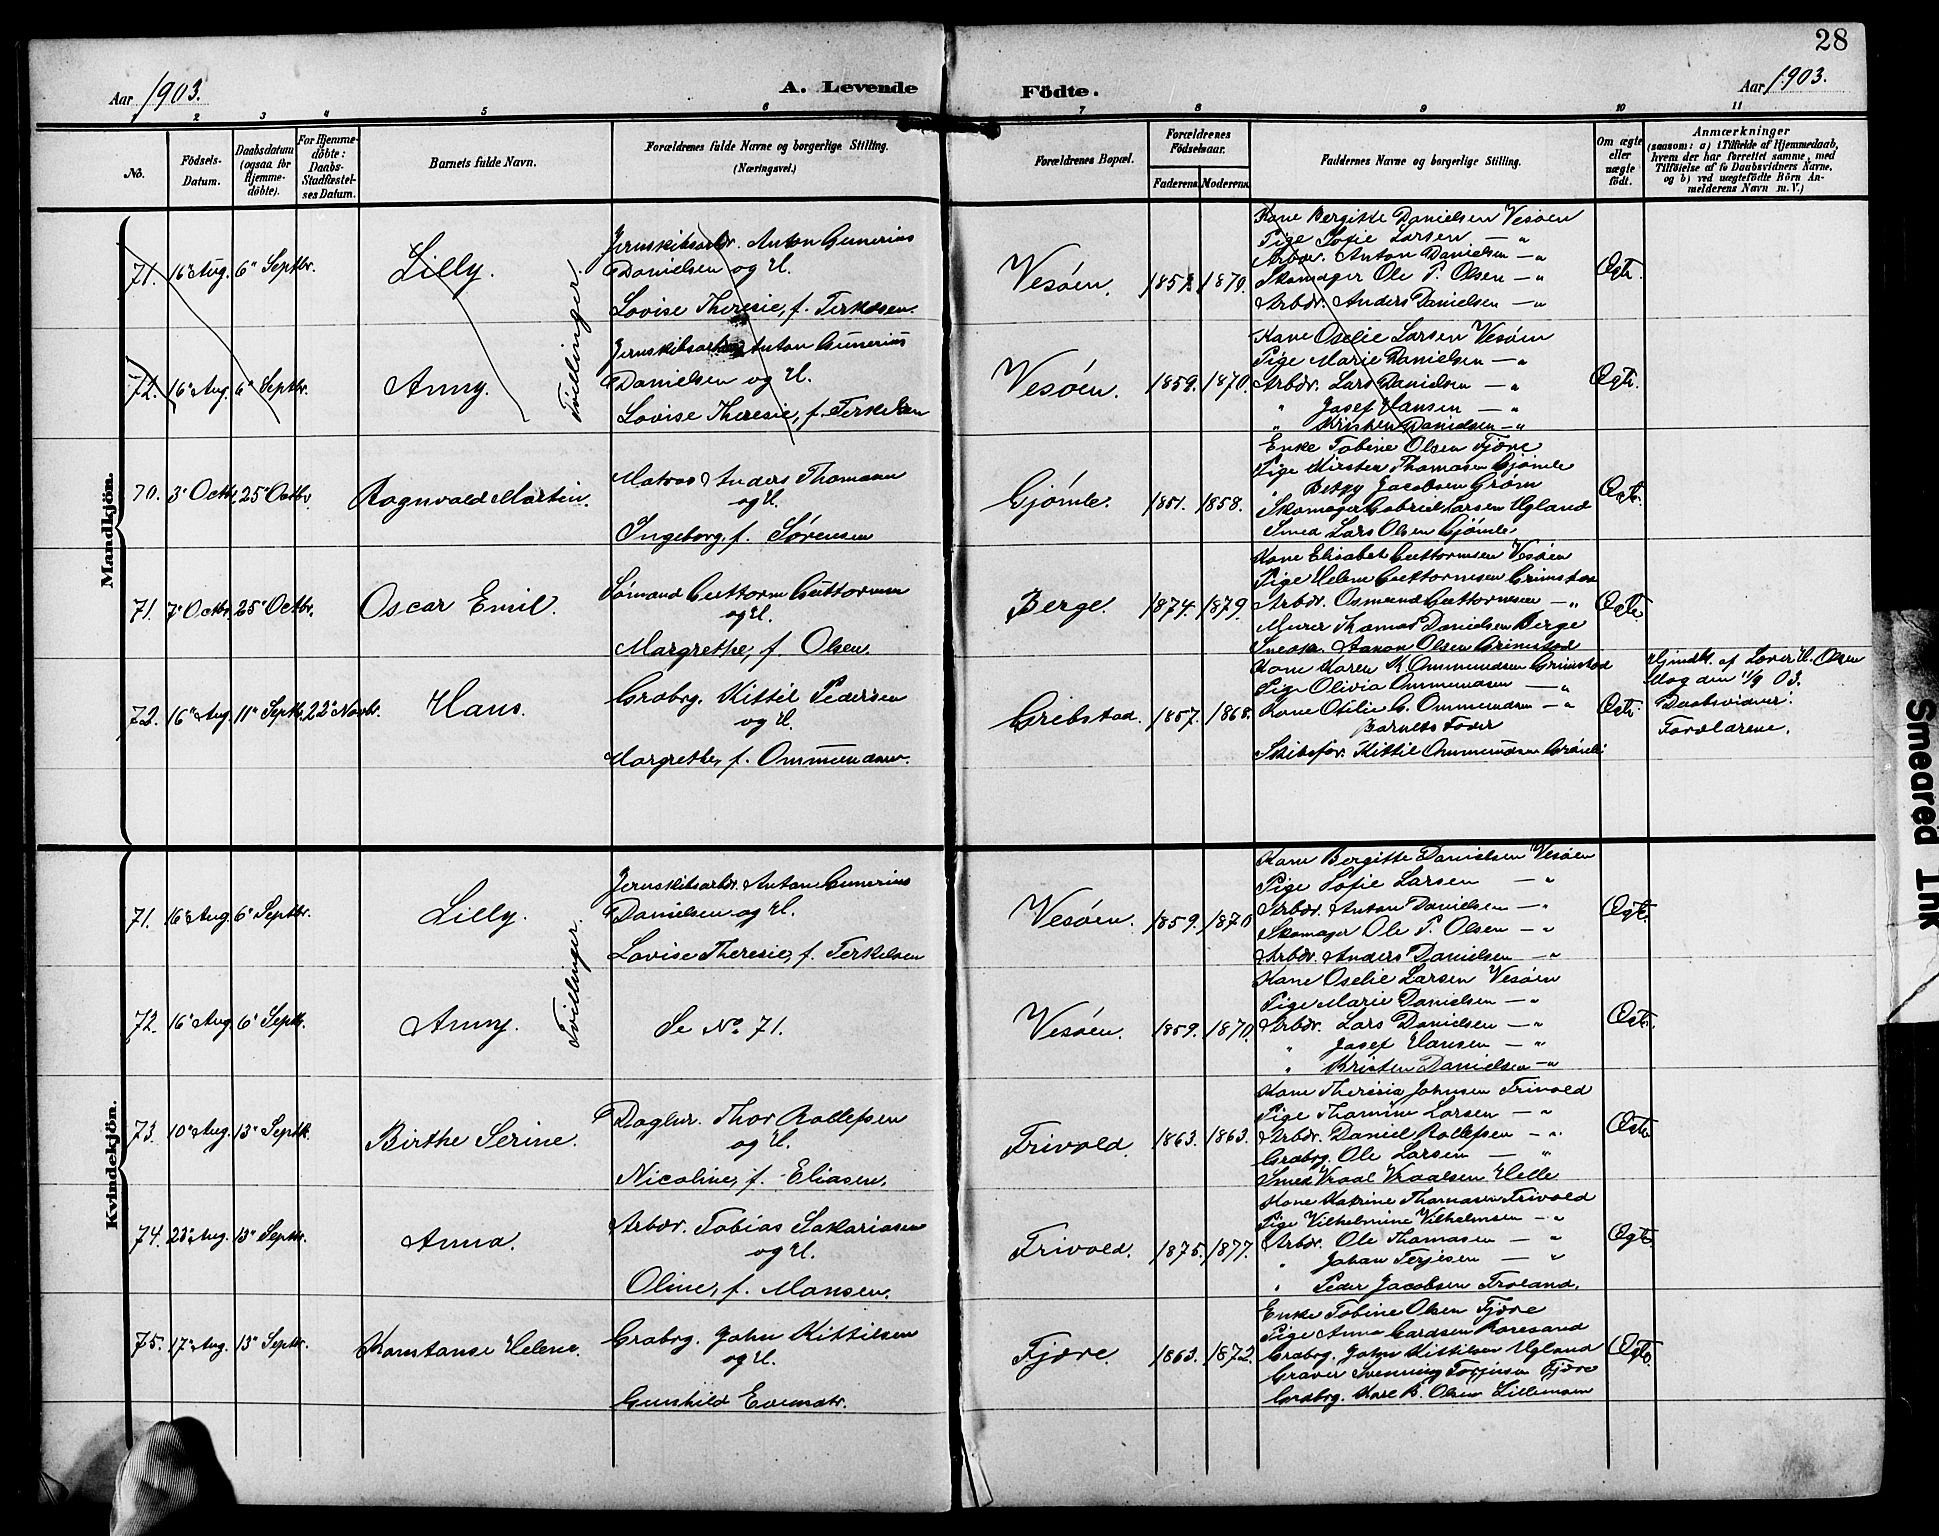 28
Aar 1903.
A. Levende Födte.
Aar 1903.
1 2 3 4 5 6 7 8 9 10 11
No.
Födsels-Datum.
Daabsdatum (ogsaa for Hjemme-döbte).
For Hjemme-döbte: Daabs-Stadfæstel-ses Datum.
Barnets fulde Navn.
Forældrenes fulde Navne og borgerlige Stilling. (Næringsvei.)
Forældrenes Bopæl.
Forældrenes Födselsaar.
Faderens. Moderens.
Faddernes Navne og borgerlige Stilling.
Om ægte eller uægte födt.
Anmærkninger
(saasom: a) i Tilfælde af Hjemmedaab,
hvem der har forrettet samme, med
Tilföielse af to Daabsvidners Navne.
og b) ved uægtefödte Börn An-
melderens Navn m. V.)
Mandkjön.
71. 16 Aug. 6" Septbr. Lilly.
Jernskibsarbdr. Anton Gunerius
Danielsen og H.
Lovise Theresie, f. Terkelsen.
Vesøen. 1879. Ægte.
Kone Bergitte Danielsen Vesøen
Pige Sofie Larsen — "
Arbdr. Anton Danielsen — "
Skomager Ole P. Olsen — "
Arbdr. Anders Danielsen — "
Tvillinger.
72. 16" Aug. 6" Septbr. Anny.
Jernskibsarbdr. Anton Gunerius
Danielsen og H.
Lovise Theresie, f. Terkelsen
Vesøen. 1859. 1870. Ægte.
Kone Oselie Larsen Vesøen
Pige Marie Danielsen — "
Arbdr. Lars Danielsen — "
" Josef Hansen — "
" Kristen Danielsen — "
70. 3" Octbr. 25" Octbr. Ragnvald Martin.
Matros Anders Thomasen
og H.
Ingeborg, f. Sørensen
Gjømle. 1851. 1858. Ægte.
Enke Tobine Olsen Fjære
Pige Kirsten Thomasen Gjømle
" Betzy Jacobsen Grøm
Skomager Gabriel Larsen Ugland
Smed Lars Olsen Gjømle
71. 7" Octbr. 25" Octbr. Oscar Emil.
Sømand Guttorm Guttormsen
og H.
Margrethe, f. Olsen.
Berge. 1874. 1879. Ægte.
Kone Elisabet Guttormsen Vesøen
Pige Helene Guttormsen Grimstad
Arbdr. Osmund Guttormsen — "
Murer Thomas Danielsen Berge
Aanon Olsen Grimstad
72. 16" Aug. 11" Septbr. 22" Novbr. Hans.
Grdbrg. Kittil Pedersen
og H.
Margrethe, f. Ommundsen.
Gribstad. 1857. 1868. Ægte.
Kone Karen K. Ommundsen Grimstad
Pige Olivia Ommundsen — "
Kone Otilie G. Ommundsen — "
Barnets Fader
Skibsfør. Kittil Ommundsen
Hjmdbt. af Lærer H. Olsen
Mog den 11/9 03.
Daabsvidner:
Forældrene.
Kvindekjön.
71. 16" Aug. 6" Septbr. Lilly.
Jernskibsarbdr. Anton Gunerius
Danielsen og H.
Lovise Theresie, f. Terkelsen
Vesøen. 1859. 1870 Ægte.
Kone Bergitte Danielsen Vesøen
Pige Sofie Larsen — "
Arbdr. Anton Danielsen — "
Skomager Ole P. Olsen — "
Arbdr. Anders Danielsen — "
Tvillinger.
72. 16" Aug. 6" Septbr. Anny.
Se No. 71.
Vesøen. 1859. 1870. Ægte.
Kone Oselie Larsen Vesøen
Pige Marie Danielsen — "
Arbdr. Lars Danielsen — "
" Josef Hansen — "
" Kristen Danielsen — "
73. 10" Aug. 13" Septbr. Birthe Serine.
Daglnr. Thor Rollefsen
og H.
Nicoline, f. Eliasen.
Frivold. 1863. 1863. Ægte
Kone Theresia Johnsen Frivold
Pige Thomine Larsen — "
Arbdr. Daniel Rollefsen — "
Grdbrg. Ole Larsen — "
Smed Vraal Vraalsen Helle
74. 23" Aug. 13" Septbr. Anna.
Arbdr. Tobias Sakariasen
og H.
Oline, f. Monsen.
Frivold. 1875. 1877. Ægte.
Kone Katrine Thomasen Frivold
Pige Vilhelmine Vilhelmsen — "
Arbdr. Ole Thomasen — "
" Johan Terjesen — "
" Peder Jacobsen Froland.
75. 17" Aug. 13" Septbr. Konstanse Helene.
Grdbrg. John Kittilsen
og H.
Gunhild Evensdtr.
Fjære. 1863. 1872. Ægte.
Enke Tobine Olsen Fjære
Pige Anna Gardsen Roresand
Grdbrg. John Kittilsen Ugland
Graver Svenning Terjesen Fjære
Grdbrg. Karl B. Olsen Lillemoen
Smeared Ink